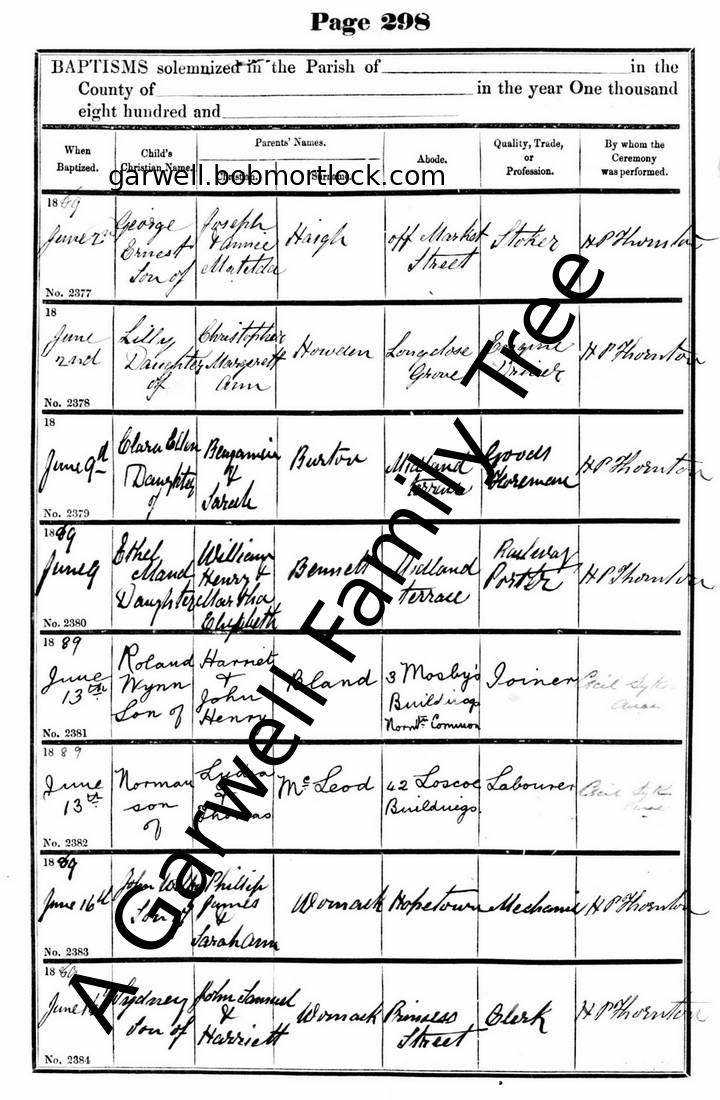 Page 298
BAPTISMS solemnized in the Parish of in the
County of in the year One thousand
eight hundred and
When Baptized.
Child's Christian Name.
Parents' Names.
Christian.
Surname.
Abode.
Quality, Trade, or Profession.
By whom the Ceremony was performed.
garwell.bobmortlock.com
1889
June 2nd
George
Ernest
Son of
Joseph
& Annie
Matilda
Haigh
off Market
Street
Stoker
H P Thornton
No. 2377
18
June
2nd
Lilly
Daughter
of
Christopher
& Margarett
Ann
Howden
Longclose
Grove
Engine
Driver
H P Thornton
No. 2378
18
June 9d
Clara Ellen
Daughter
of
Benjamin
&
Sarah
Burton
Midland
terrace
Goods
Foreman
H P Thornton
No. 2379
1889
June 9
Ethel
Maud
Daughter
William
Henry &
Martha
Elizabeth
Bennett
Midland
terrace
Railway
Porter
H P Thornton
No. 2380
1889
June
13th
Roland
Wynn
Son of
Harriet
&
John
Henry
Bland
3 Mosby's
Buildings
Normtn Common
Joiner
Cecil Sykes
No. 2381
1889
June
13th
Norman
son
of
Lydia
&
Thomas
McLeod
42 Loscoe
Buildings.
Labourer
Cecil Sykes
No. 2382
1889
June 16th
John
Son of
Phillip
James
&
Sarah Ann
Womack
Hopetown
Mechanic
H P Thornton
No. 2383
1889
June 16th
Sydney
Son of
John Samuel
&
Harriett
Womack
Princess
Street
Clerk
H P Thornton
No. 2384
A Garwell Family Tree